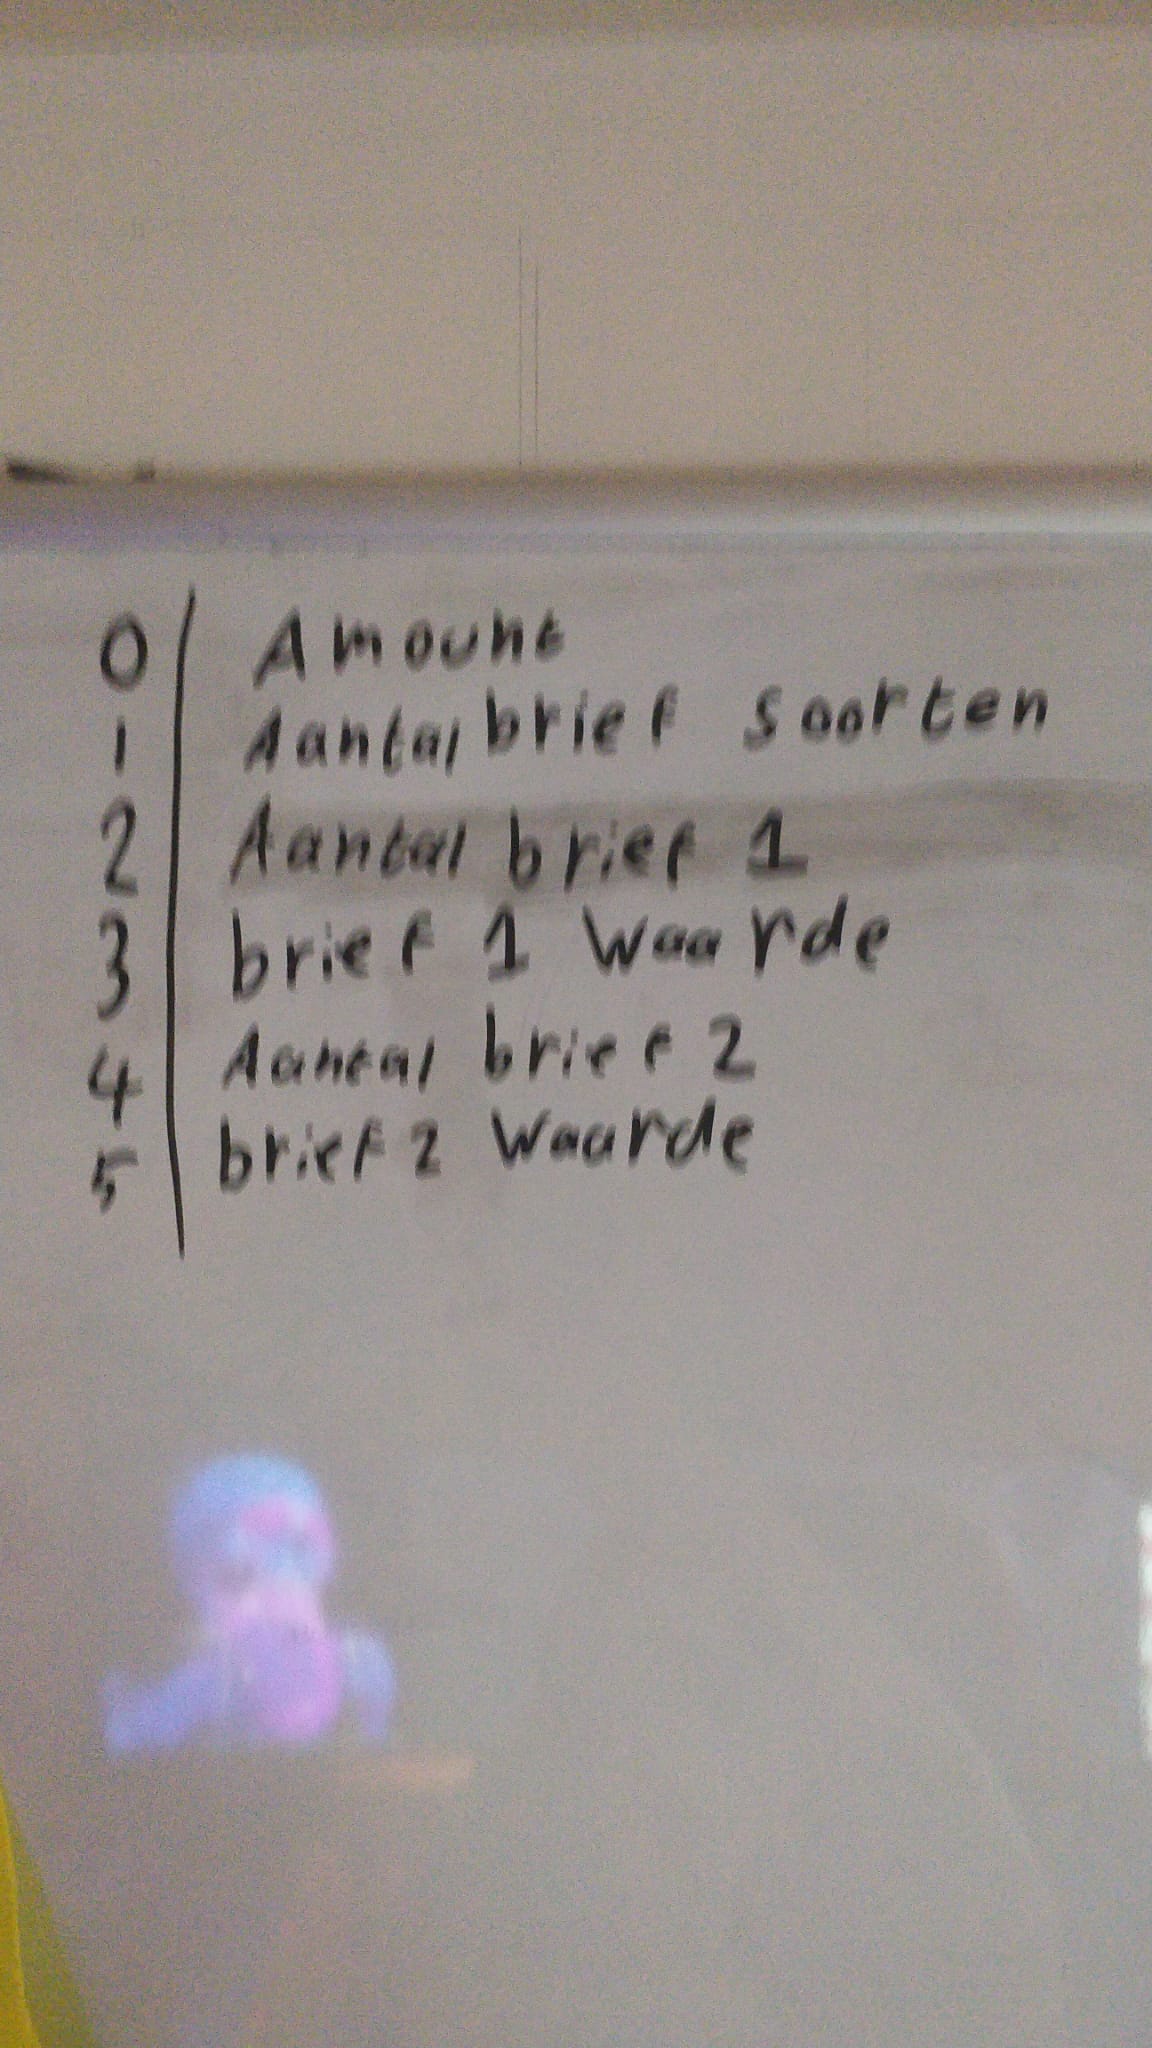 0 Amount
1 Aantal brief soorten
2 Aantal brief 1
3 brief 1 Waarde
4 Aantal brief 2
5 brief 2 Waarde